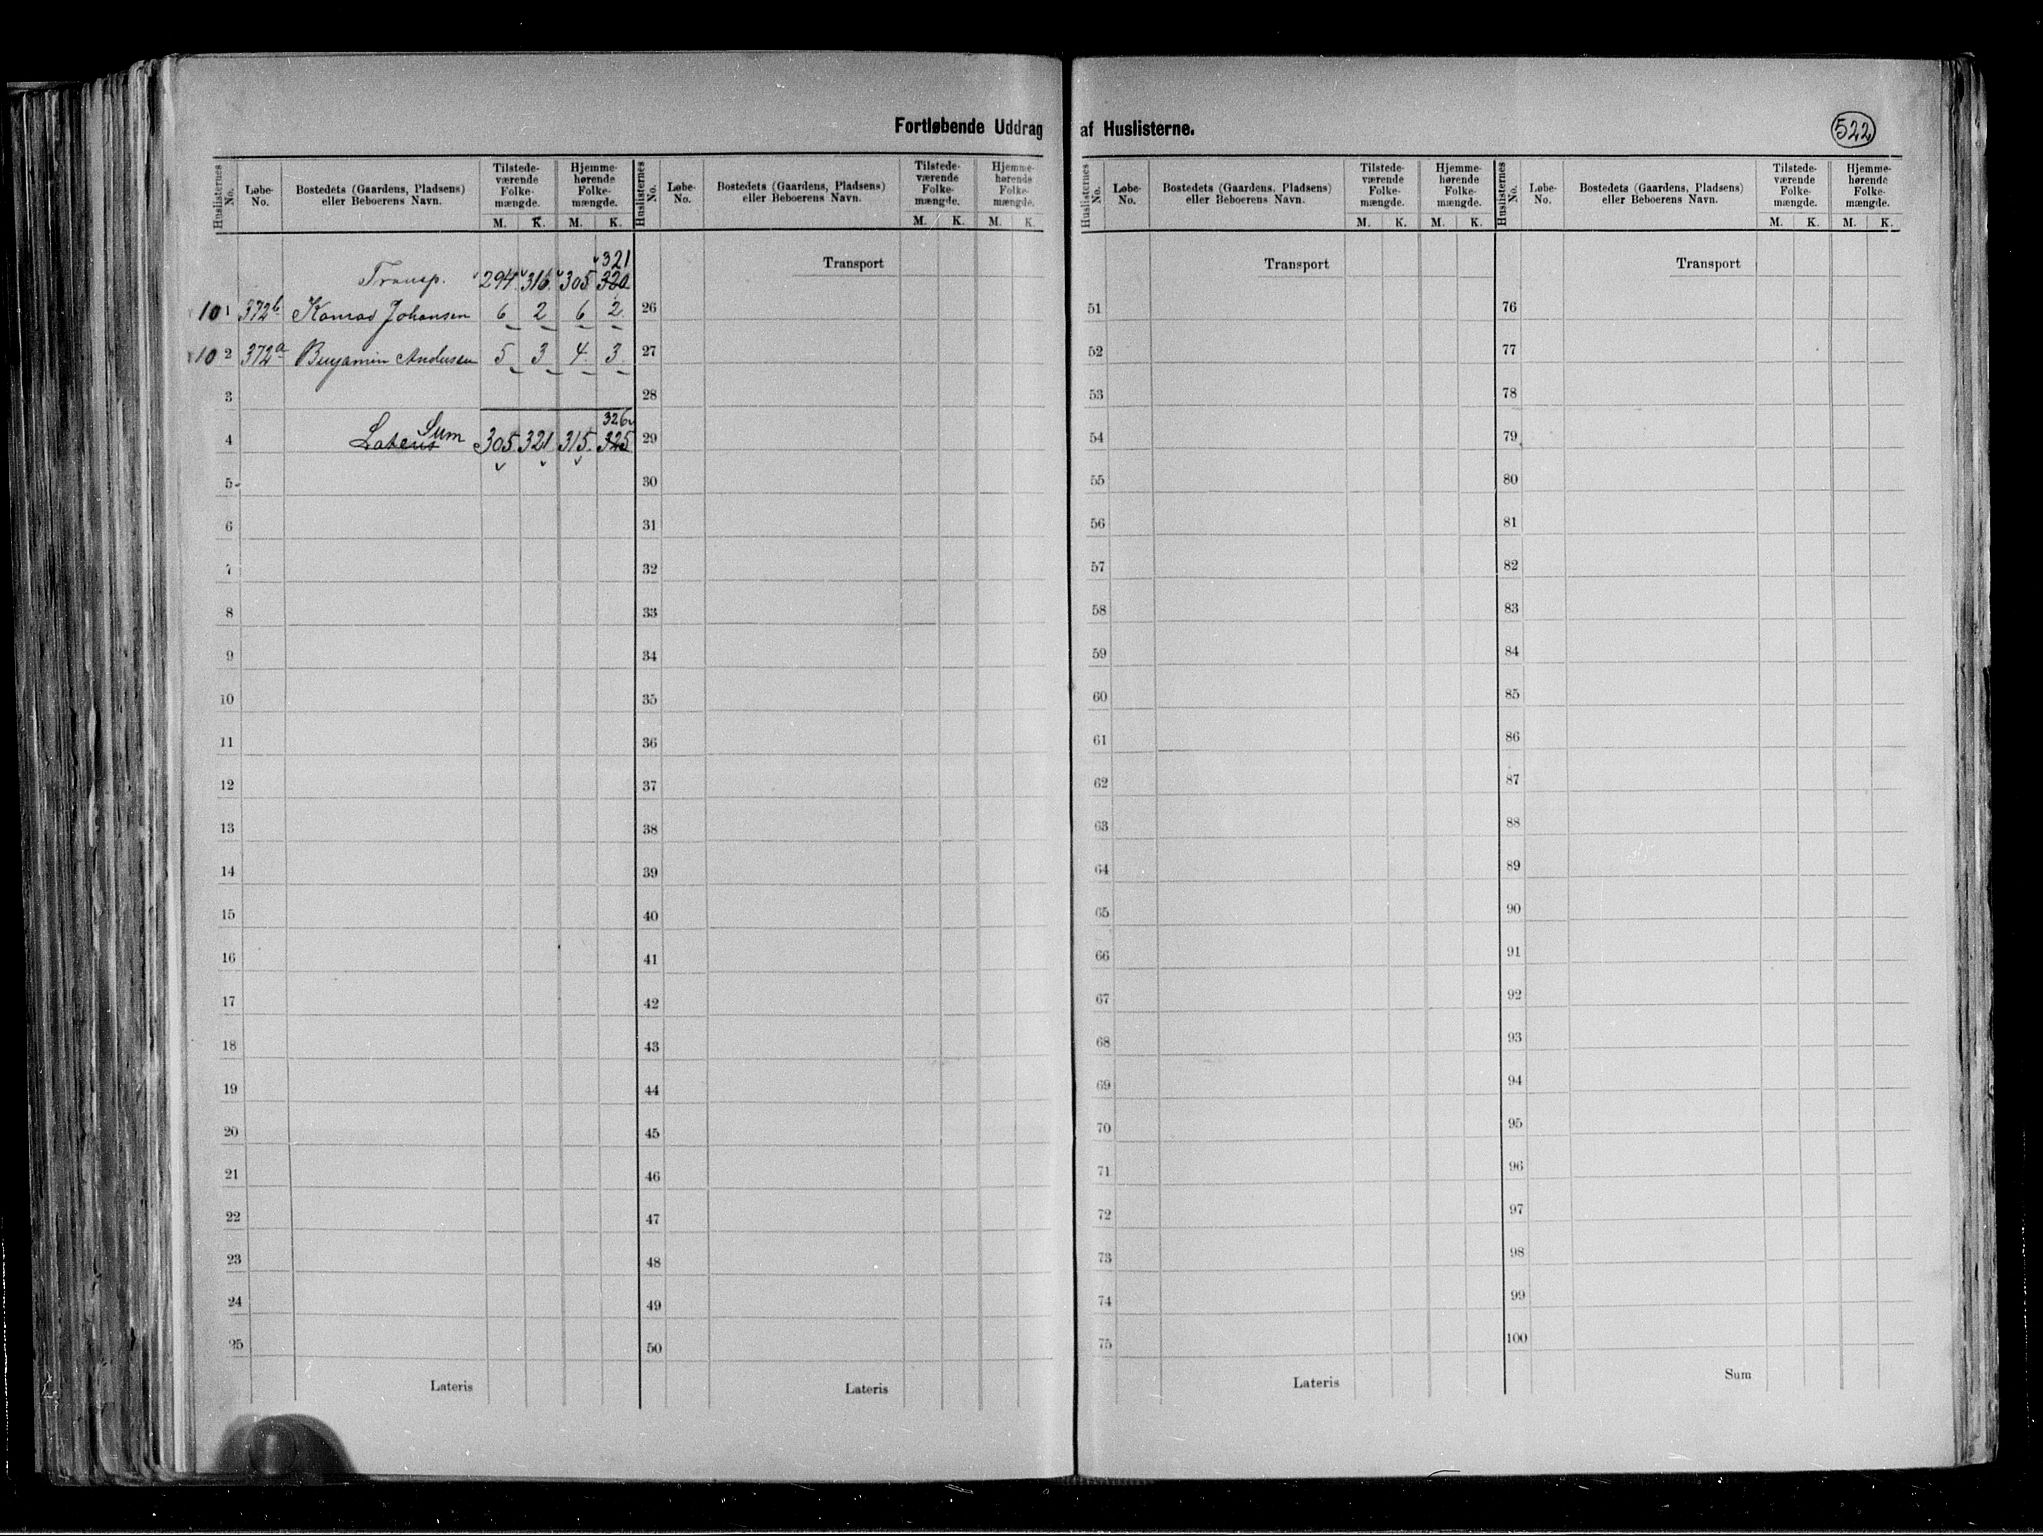 Fortløbende Uddrag af Huslisterne.
522
Huslisternes No.
Løbe-No.
Bostedets (Gaardens, Pladsens) eller Beboerens Navn.
Tilstede-værende Folke-mængde.
Hjemme-hørende Folke-mængde.
M. K. M. K.
321
Transp. 294 316 305 320
10 1 372b Konrad Johansen 6 2 6 2
10 2 372a Benjamin Andersen 5 3 4 3
3
326
4 Lateris Sum 305 321 315 325
5
6
7
8
9
10
11
12
13
14
15
16
17
18
19
20
21
22
23
24
25
Lateris
Huslisternes No.
Løbe-No.
Bostedets (Gaardens, Pladsens) eller Beboerens Navn.
Tilstede-værende Folke-mængde.
Hjemme-hørende Folke-mængde.
M. K. M. K.
Transport
26
27
28
29
30
31
32
33
34
35
36
37
38
39
40
41
42
43
44
45
46
47
48
49
50
Lateris
Huslisternes No.
Løbe-No.
Bostedets (Gaardens, Pladsens) eller Beboerens Navn.
Tilstede-værende Folke-mængde.
Hjemme-hørende Folke-mængde.
M. K. M. K.
Transport
51
52
53
54
55
56
57
58
59
60
61
62
63
64
65
66
67
68
69
70
71
72
73
74
75
Lateris
Huslisternes No.
Løbe-No.
Bostedets (Gaardens, Pladsens) eller Beboerens Navn.
Tilstede-værende Folke-mængde.
Hjemme-hørende Folke-mængde.
M. K. M. K.
Transport
76
77
78
79
80
81
82
83
84
85
86
87
88
89
90
91
92
93
94
95
96
97
98
99
100
Sum